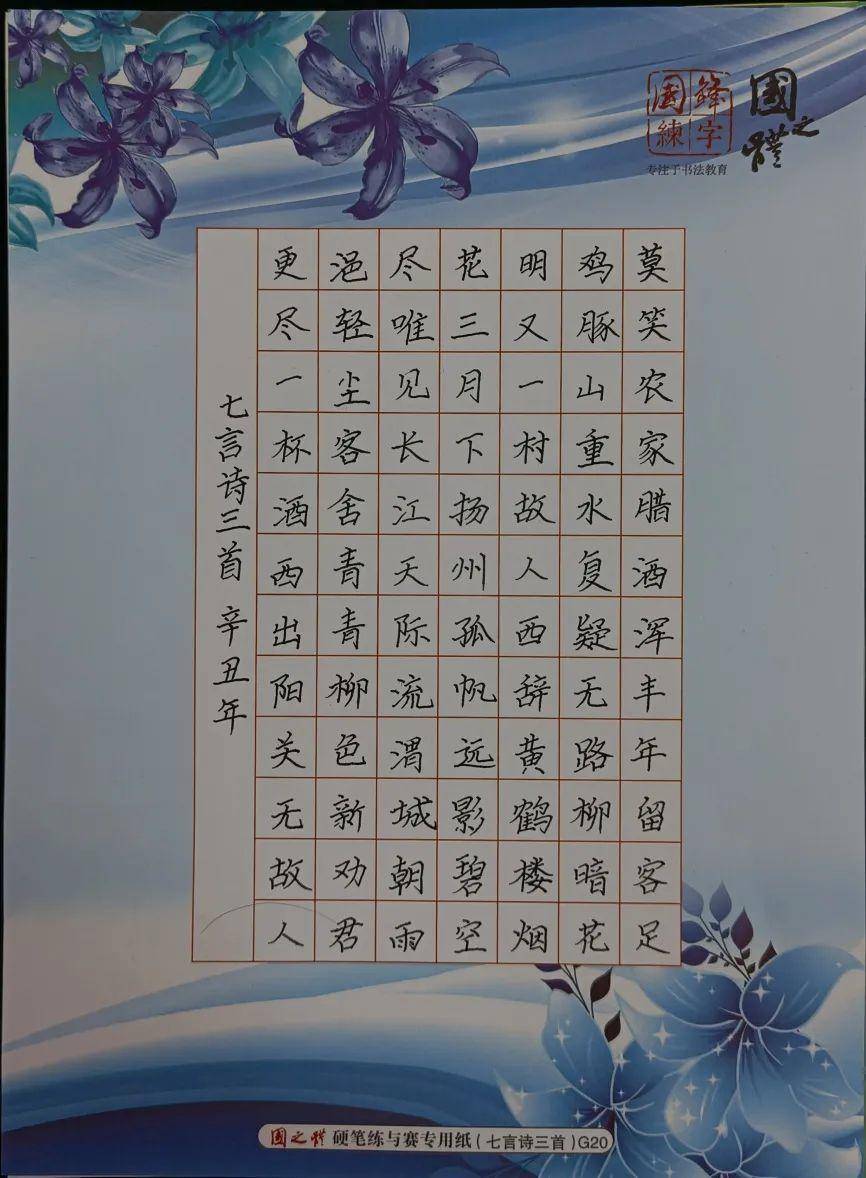 國鋒練字
專注于书法教育
國之體
莫笑农家腊酒浑丰年留客足
鸡豚山重水复疑无路柳暗花
明又一村故人西辞黄鹤楼烟
花三月下扬州孤帆远影碧空
尽唯见长江天际流渭城朝雨
浥轻尘客舍青青柳色新劝君
更尽一杯酒西出阳关无故人
七言诗三首 辛丑年
國之體 硬笔练与赛专用纸(七言诗三首)G20